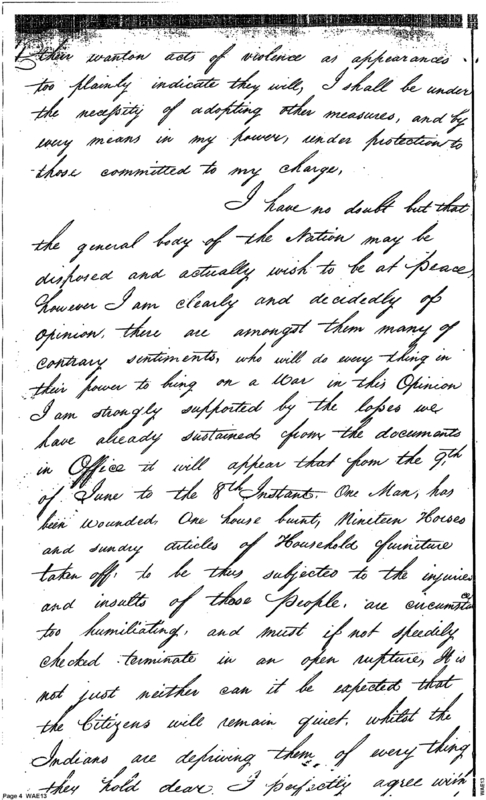 their wanton acts of violence as appearances
too plainly indicate they will, I shall be under
the necessity of adopting other measures, and by
every means in my power, under protection to
those committed to my charge,
I have no doubt but that
the general body of the Nation may be
disposed and actually wish to be at peace,
however I am clearly and decidedly of
opinion, there are amongst them many of
contrary sentiments, who will do every thing in
their power to bring on a War in this Opinion
I am strongly supported by the losses we
have already sustained from the documents
in Office it will appear that from the 9th
of June to the 8th Instant. One Man, has
been wounded, One house burnt, Nineteen Horses
and sundry articles of Household furniture
taken off, to be thus subjected to the injuries
and insults of these People, are
too humiliating, and must if not speedily
checked terminate in an open rupture, It is
not just neither can it be expected that
the Citizens will remain quiet, whilst the
Indians are depriving them, of every thing
they hold dear I perfectly agree with
Page 4 WAE13
WAE13